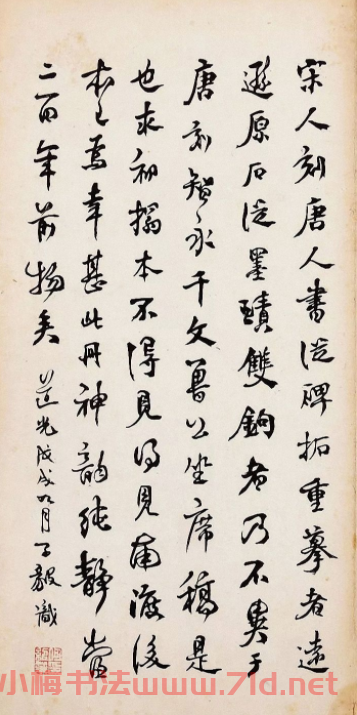 宋人刻唐人書從碑拓重摹者遠
遜原石從墨蹟雙鉤者乃不異于
唐刻智永千文魯公坐席稿是
也求初搨本不得見得見南渡後
本已為幸甚此冊神韻純靜當
二百年前物矣 道光戊戌月子毅識
小梅书法www.71d.net